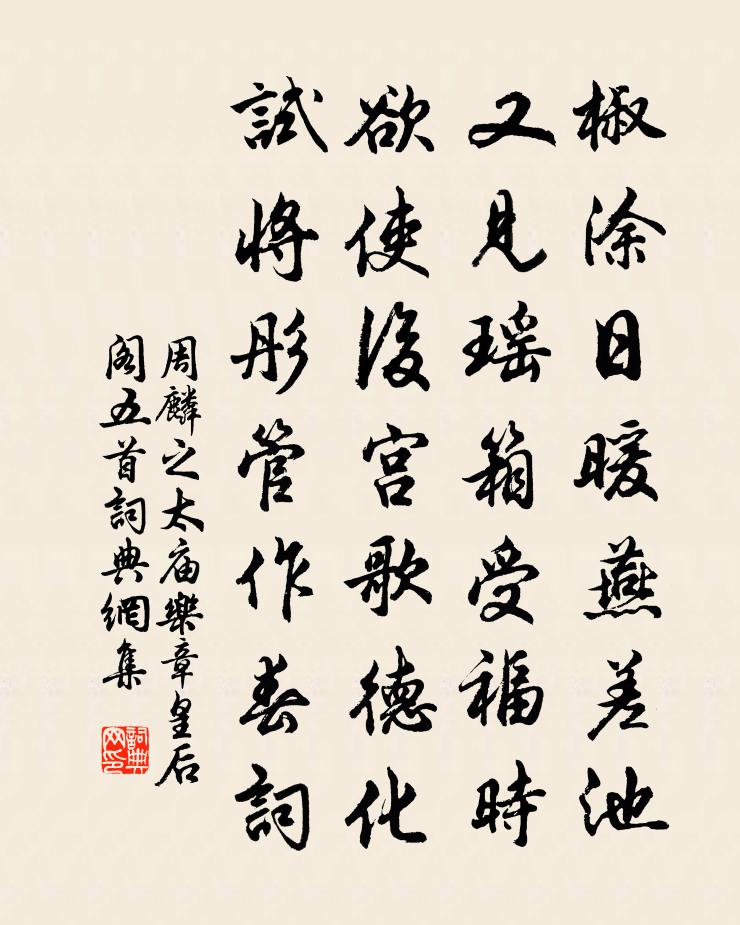 椒涂日暖燕差池
又見瑶箱受福時
欲使後宫歌德化
試將彤管作春詞
周麟之太庙樂章皇后
阁五首詞典網集
詞典网印